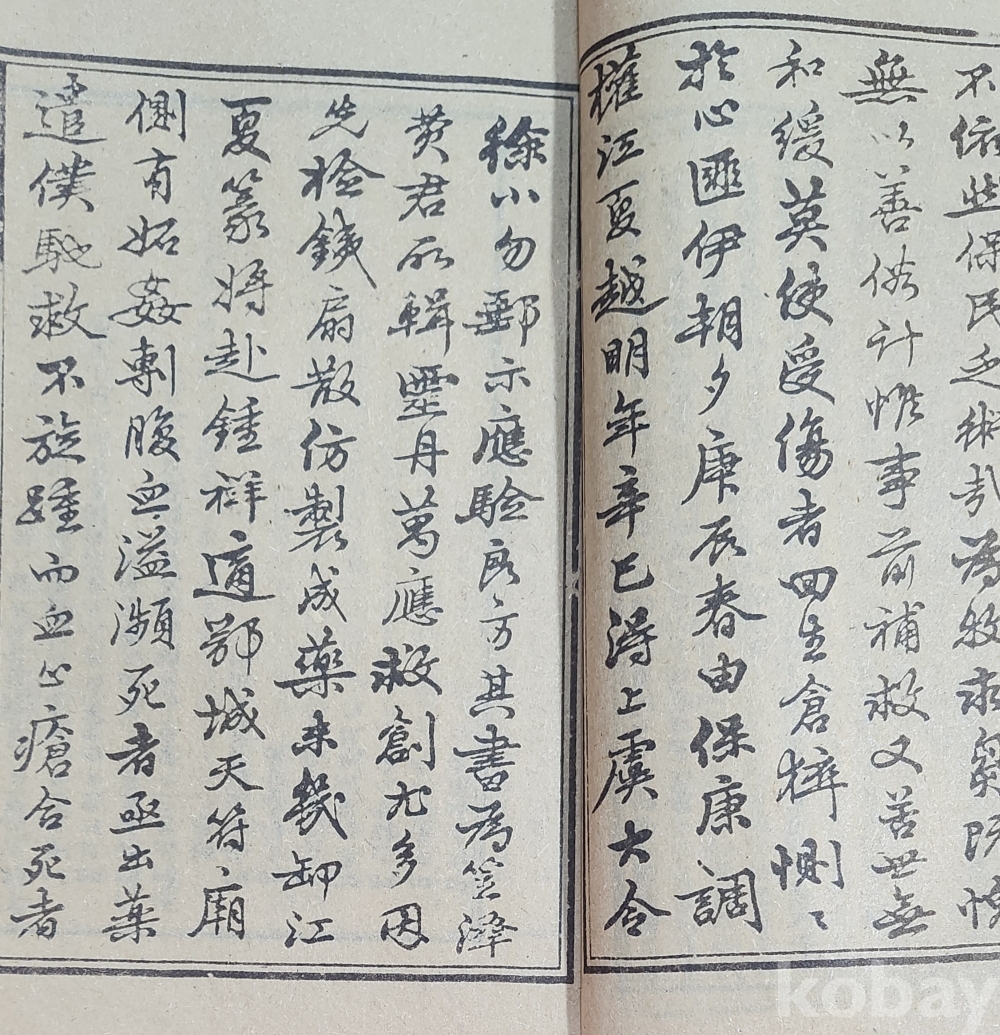 不依些保民乏術哉為牧求芻既愧
無以善俗計惟事前補救又善世無
和緩莫使受傷者回生倉猝惻〻
於心匪伊朝夕庚辰春由保康調
權江夏越明年辛巳得上虞大令
徐小勿郵示應驗良方其書為笠澤
費君所輯靈丹萬應救創尤多因
先撿鐵扇散仿製成藥未幾卸江
夏篆將赴鍾祥適鄂城天符廟
側有妬姦剚腹血溢瀕死者亟出藥
遣僕馳救不旋踵而血止瘡合死者
kobay